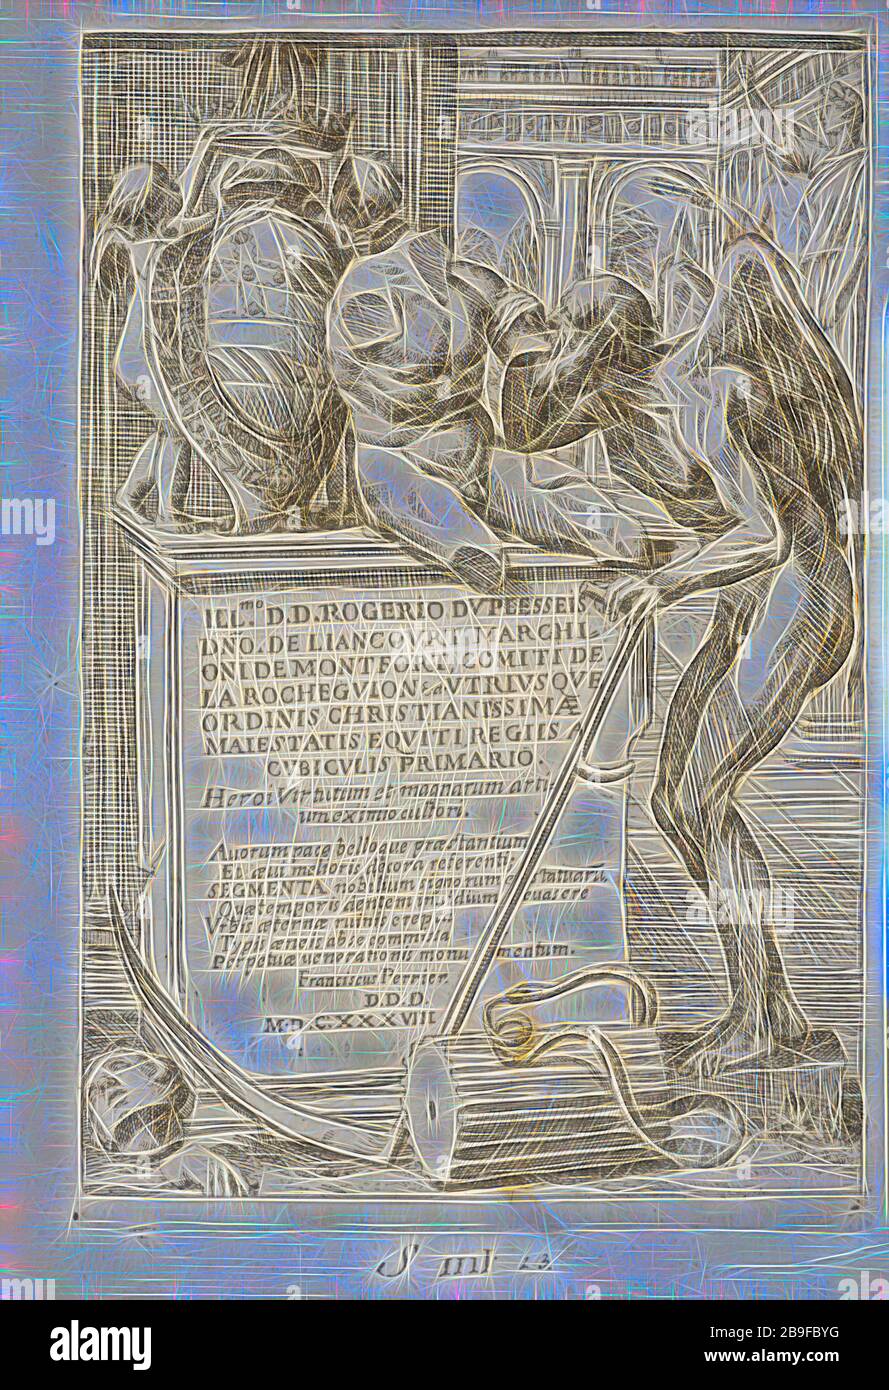 ILL.mo D.D. ROGERIO DVPLESSEIS
DNO. DE LIANCOVRT MARCHI-
ONI DE MONTFORT, COMITI DE
LA ROCHEGVION &a VTRIVSQVE
ORDINIS CHRISTIANISSIMÆ
MAIESTATIS EQVITI REGIIS A
CVBICVLIS PRIMARIO.
Heroi Virtutum et magnarum arti-
um eximio cultori.
Auorum pace belloque præstantium
Et æui melioris decora referenti,
SEGMENTA nobilium signorum et statuarũ,
Quæ temporis dentem inuidium euasere
Vrbis æternæ ruinis erepta
Typis æneis abse commissa
Perpetuæ uenerationis monumentum.
Franciscus Perrier.
D.D.D.
M.D.C.XXXVIII
S IIII 23
alamy
Image ID: 2B9FBYG
www.alamy.com